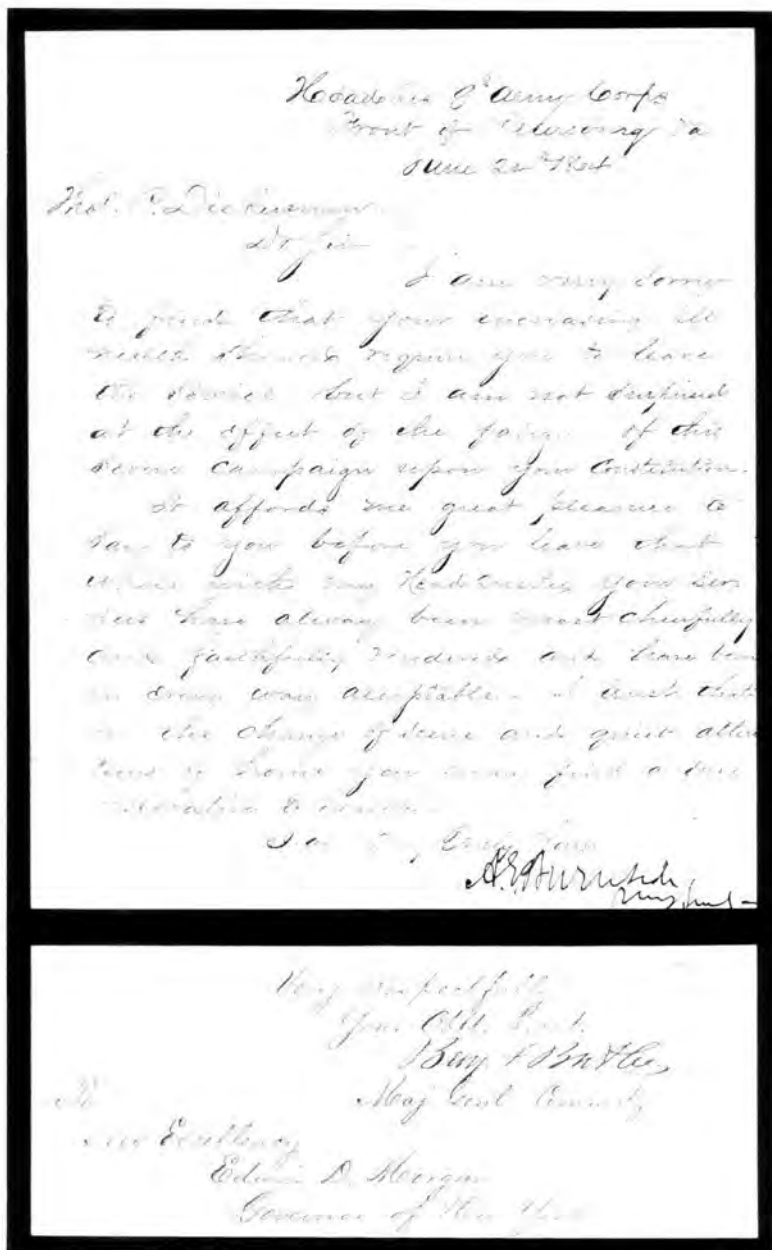 Army Corps
Front of
June
I am very sorry
to find that your increasing ill
health should require you to leave
the service but I am not surprised
at the effect of the of this
severe campaign upon your Constitution.
It affords me great pleasure to
say to you before you leave that
while with my Head Quarters your ser
vices have always been most cheerfully
and faithfully rendered and have been
in every way acceptable. I trust that
in the change of scene and quiet
home you may find a
Truly Yours
A.E. Burnside
Very respectfully
Your Obt. Servt.
Benj F Butler
Maj Genl
To
His Excellency
Edwin D. Morgan
Governor of New York